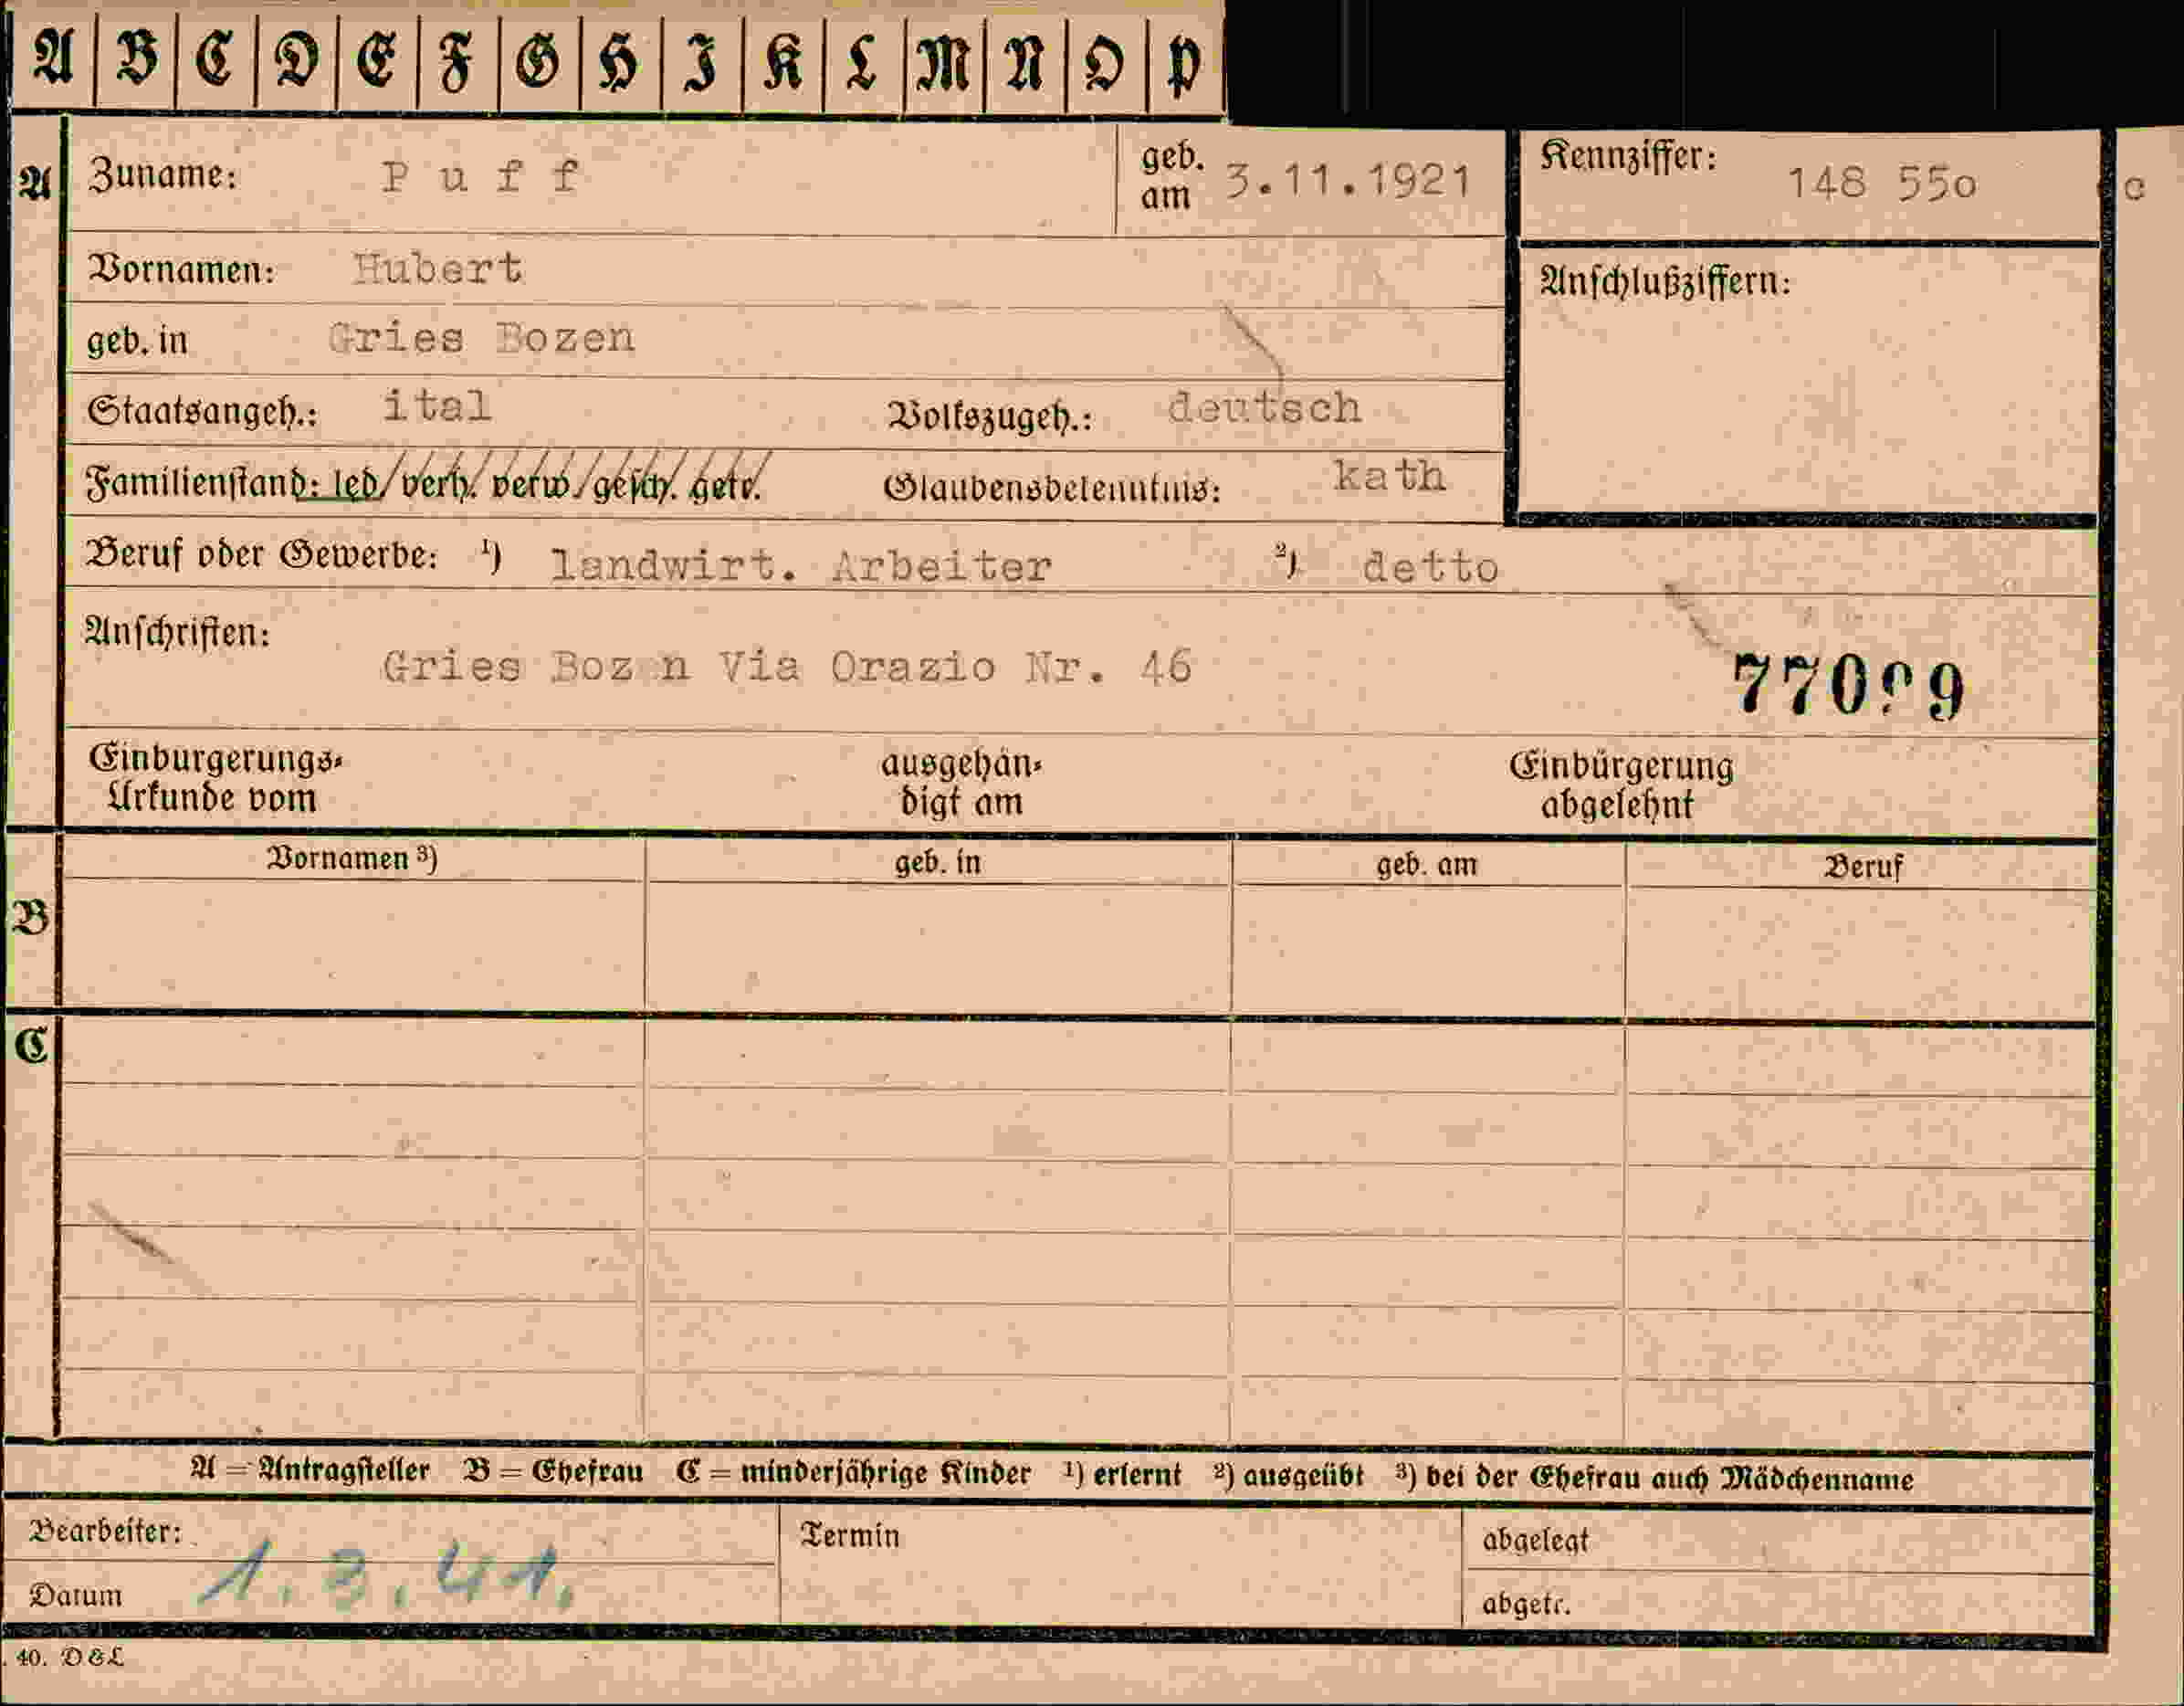 A B C D E F G H I K L M N O P
A Zuname: P u f f geb. am 3.11.1921 Kennziffer: 148 55o c
Vornamen: Hubert Anschlußziffern:
geb. in Gries Bozen
Staatsangeh.: ital Volkszugeh.: deutsch
Familienstand: led/verh./verw/gesch. getr. Glaubensbekenntnis: kath
Beruf oder Gewerbe: ¹) landwirt. Arbeiter ²) detto
Anschriften:
Gries Boz n Via Orazio Nr. 46
Einbürgerungs-
Urkunde vom
ausgehän-
digt am
Einbürgerung
abgelehnt
B Vornamen ³) geb. in geb. am Beruf
C
A = Antragsteller B = Ehefrau C = minderjährige Kinder ¹) erlernt ²) ausgeübt ³) bei der Ehefrau auch Mädchenname
Bearbeiter: Termin abgelegt
Datum 1.3.41. abgetr.
40. D&L